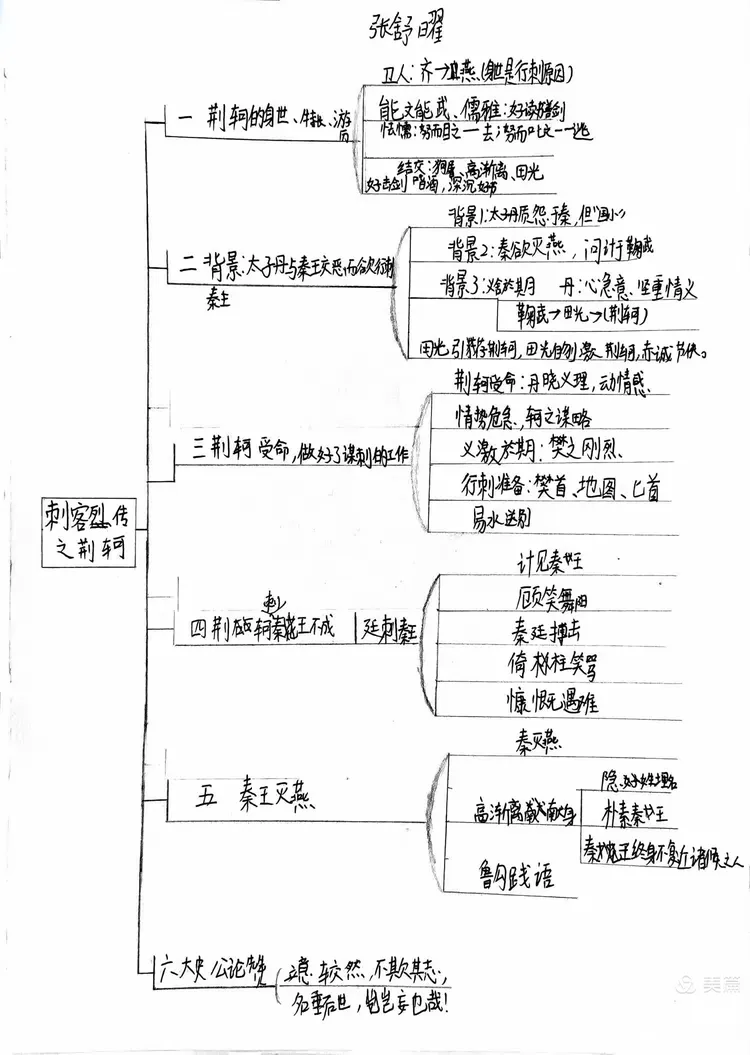 张舒曜
刺客烈传
之荆轲
一 荆轲的身世、性格、游历
卫人：齐→卫燕(身世是行刺原因)
能文能武、儒雅：好读书击剑
怯懦：怒而目之一去；怒而叱之一逃
结交：狗屠、高渐离、田光
好击剑 嗜酒，深沉好书
二 背景：太子丹与秦王交恶而欲行刺
秦王
背景1：太子丹质怨于秦，但“国小”
背景2：秦欲灭燕，问计于鞠武
背景3：义舍於期 丹：心急意、坚重情义
鞠武→田光→(荆轲)
田光引荐荆轲，田光自刎激荆轲，赤诚节侠。
三 荆轲受命，做好了谋刺的工作
荆轲受命：丹晓义理，动情感、
情势危急，轲之谋略
义激於期：樊之刚烈、
行刺准备：樊首、地图、匕首
易水送别
刺
四 荆轲秦王不成
廷刺秦王
计见秦王
顾笑舞阳
秦廷搏击
倚柱笑骂
慷慨遇难
五 秦王灭燕
秦灭燕
高渐离献身
隐姓埋名
朴素秦王
秦王终身不复近诸侯之人
鲁勾践语
六、太史公论赞
立意较然，不欺其志，
名垂后世，岂妄也哉！
美篇